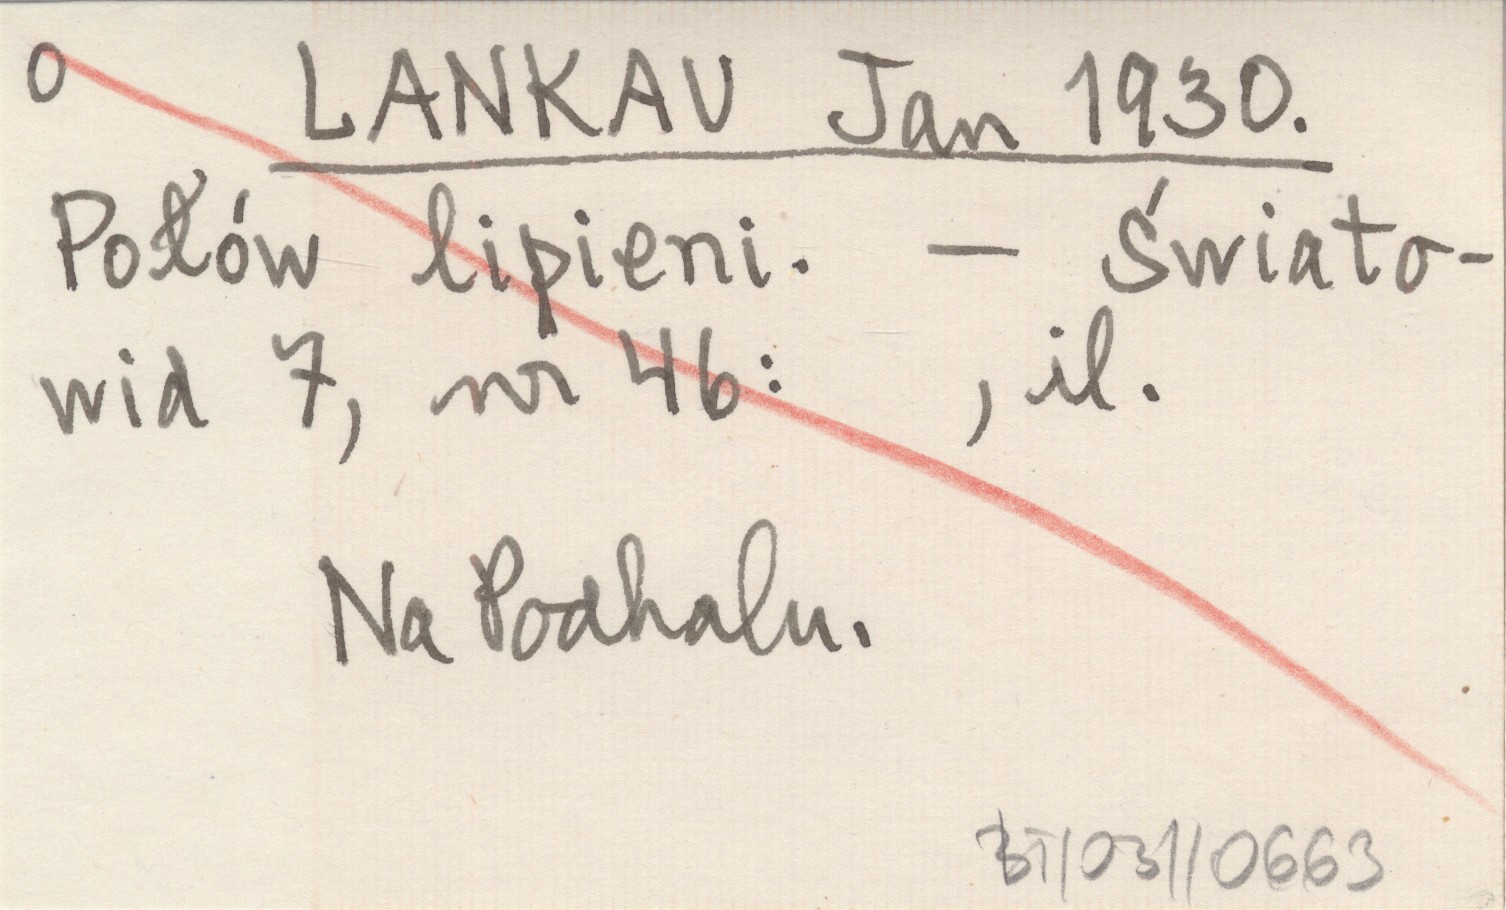 O LANKAU Jan 1930.
Połów lipieni. — Świato-
wid 7, nr 46: , il.
Na Podhalu.
BT/031/0663